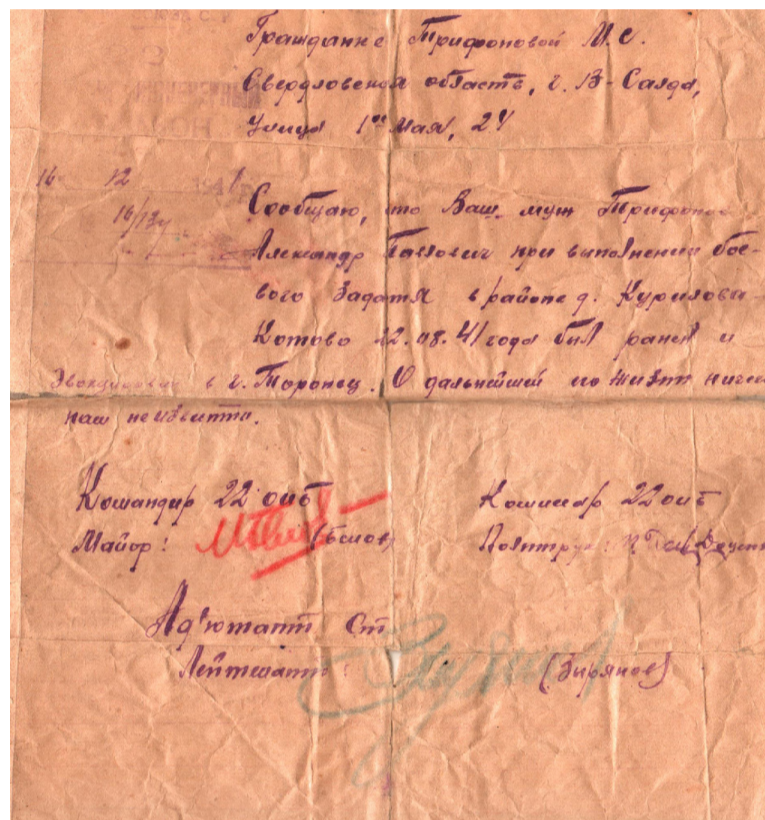 Гражданке Трифоновой М.С.
Свердловская область, г. В-Салда,
улица 1го Мая, 24
16 12 1941
16/134
Сообщаю, что Ваш муж Трифонов
Александр Павлович при выполнении бое-
вого задатя в районе д. Курилова-
Котово 22.08.41 года был ранен и
Эвакуирован в г. Торопец. О дальнейшей его жизни ниче
нам неизвитно.
Командир 22 оиб Комиссар 22 оиб
Майор: Политрук:
Ад'ютант Ст
Лейтенант: (Зырянов)